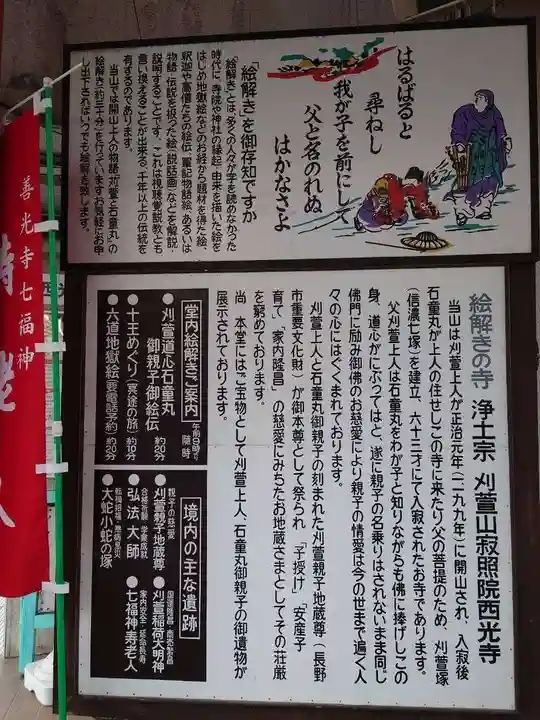 はるばると
尋ねし
我が子を前にして
父と名のれぬ
はかなさよ
「絵解き」を御存知ですか
絵解きとは、多くの人々が字を読めなかった
時代に、寺院や神社の縁起、由来を描いた絵を
はじめ地獄絵などのお経から題材を得た絵、
釈迦や高僧たちの絵伝、軍記物語絵、あるいは
物語・伝説を扱った絵(説話画)などを解説・
説明することです。これは視聴覚説教とも
言い換えることが出来る、千年以上の伝統を
有するのであります。
当山では開山上人の物語「刈萱と石童丸」の
絵解き(約三十分)を行っていますお気軽にお申
し出下さればいつでも絵解き致します。
絵解きの寺 浄土宗 刈萱山寂照院西光寺
当山は刈萱上人が正治元年(一一九九年)に開山され、入寂後
石童丸が上人の住せしこの寺に来たり父の菩提のため、刈萱塚
(信濃七塚)を建立、六十三才にて入寂されたお寺であります。
父刈萱上人は石童丸をわが子と知りながらも佛に捧げしこの
身、道心がにぶってはと、遂に親子の名乗りはされないまま同じ
佛門に励み御佛のお慈愛により親子の情愛は今の世まで遍く人
々の心にはぐくまれております。
刈萱上人と石童丸御親子の刻まれた刈萱親子地蔵尊(長野
市重要文化財)が御本尊として祭られ 「子授け」「安産子
育て」「家内隆昌」の慈愛にみちたお地蔵さまとしてその荘厳
を窮めております。
尚 本堂にはご宝物として刈萱上人、石童丸御親子の御遺物が
展示されております。
堂内絵解きご案内
午前9時より 随時
●刈萱道心石童丸
御親子御絵伝 約20分
●十王めぐり(冥途の旅) 約10分
●六道地獄絵(要電話予約) 約20分
境内の主な遺跡
親子の慈愛
●刈萱親子地蔵尊
合格祈願・学業成就
●弘法大師
転禍招福・悪病息災
●大蛇小蛇の塚
国運隆昌・商売繁昌
●刈萱稲荷大明神
家内安全・延命長寿
●七福神寿老人
善光寺七福神
寿老人